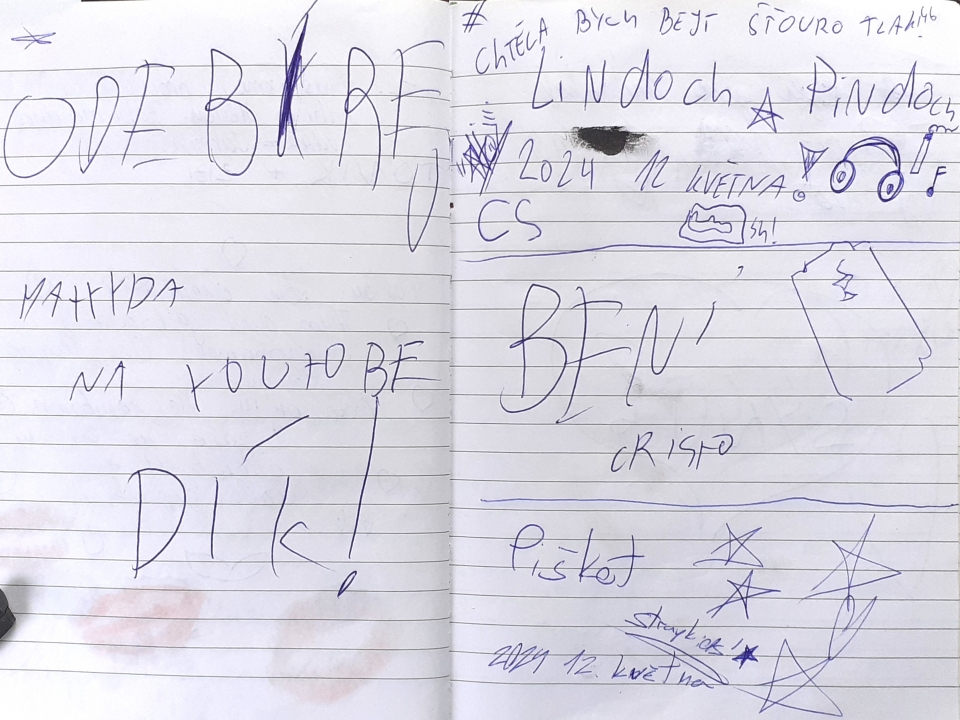 ODEBÝREJ
MATYLDA
NA YOUTOBE
DÍK!
# CHTĚLA BÝCH BEJT ŠŤOURO
LiNDoch PiNDoch
2024 12 KVĚTNA
CS
BEN'
CRISTO
Piškot
2024 12. květNa